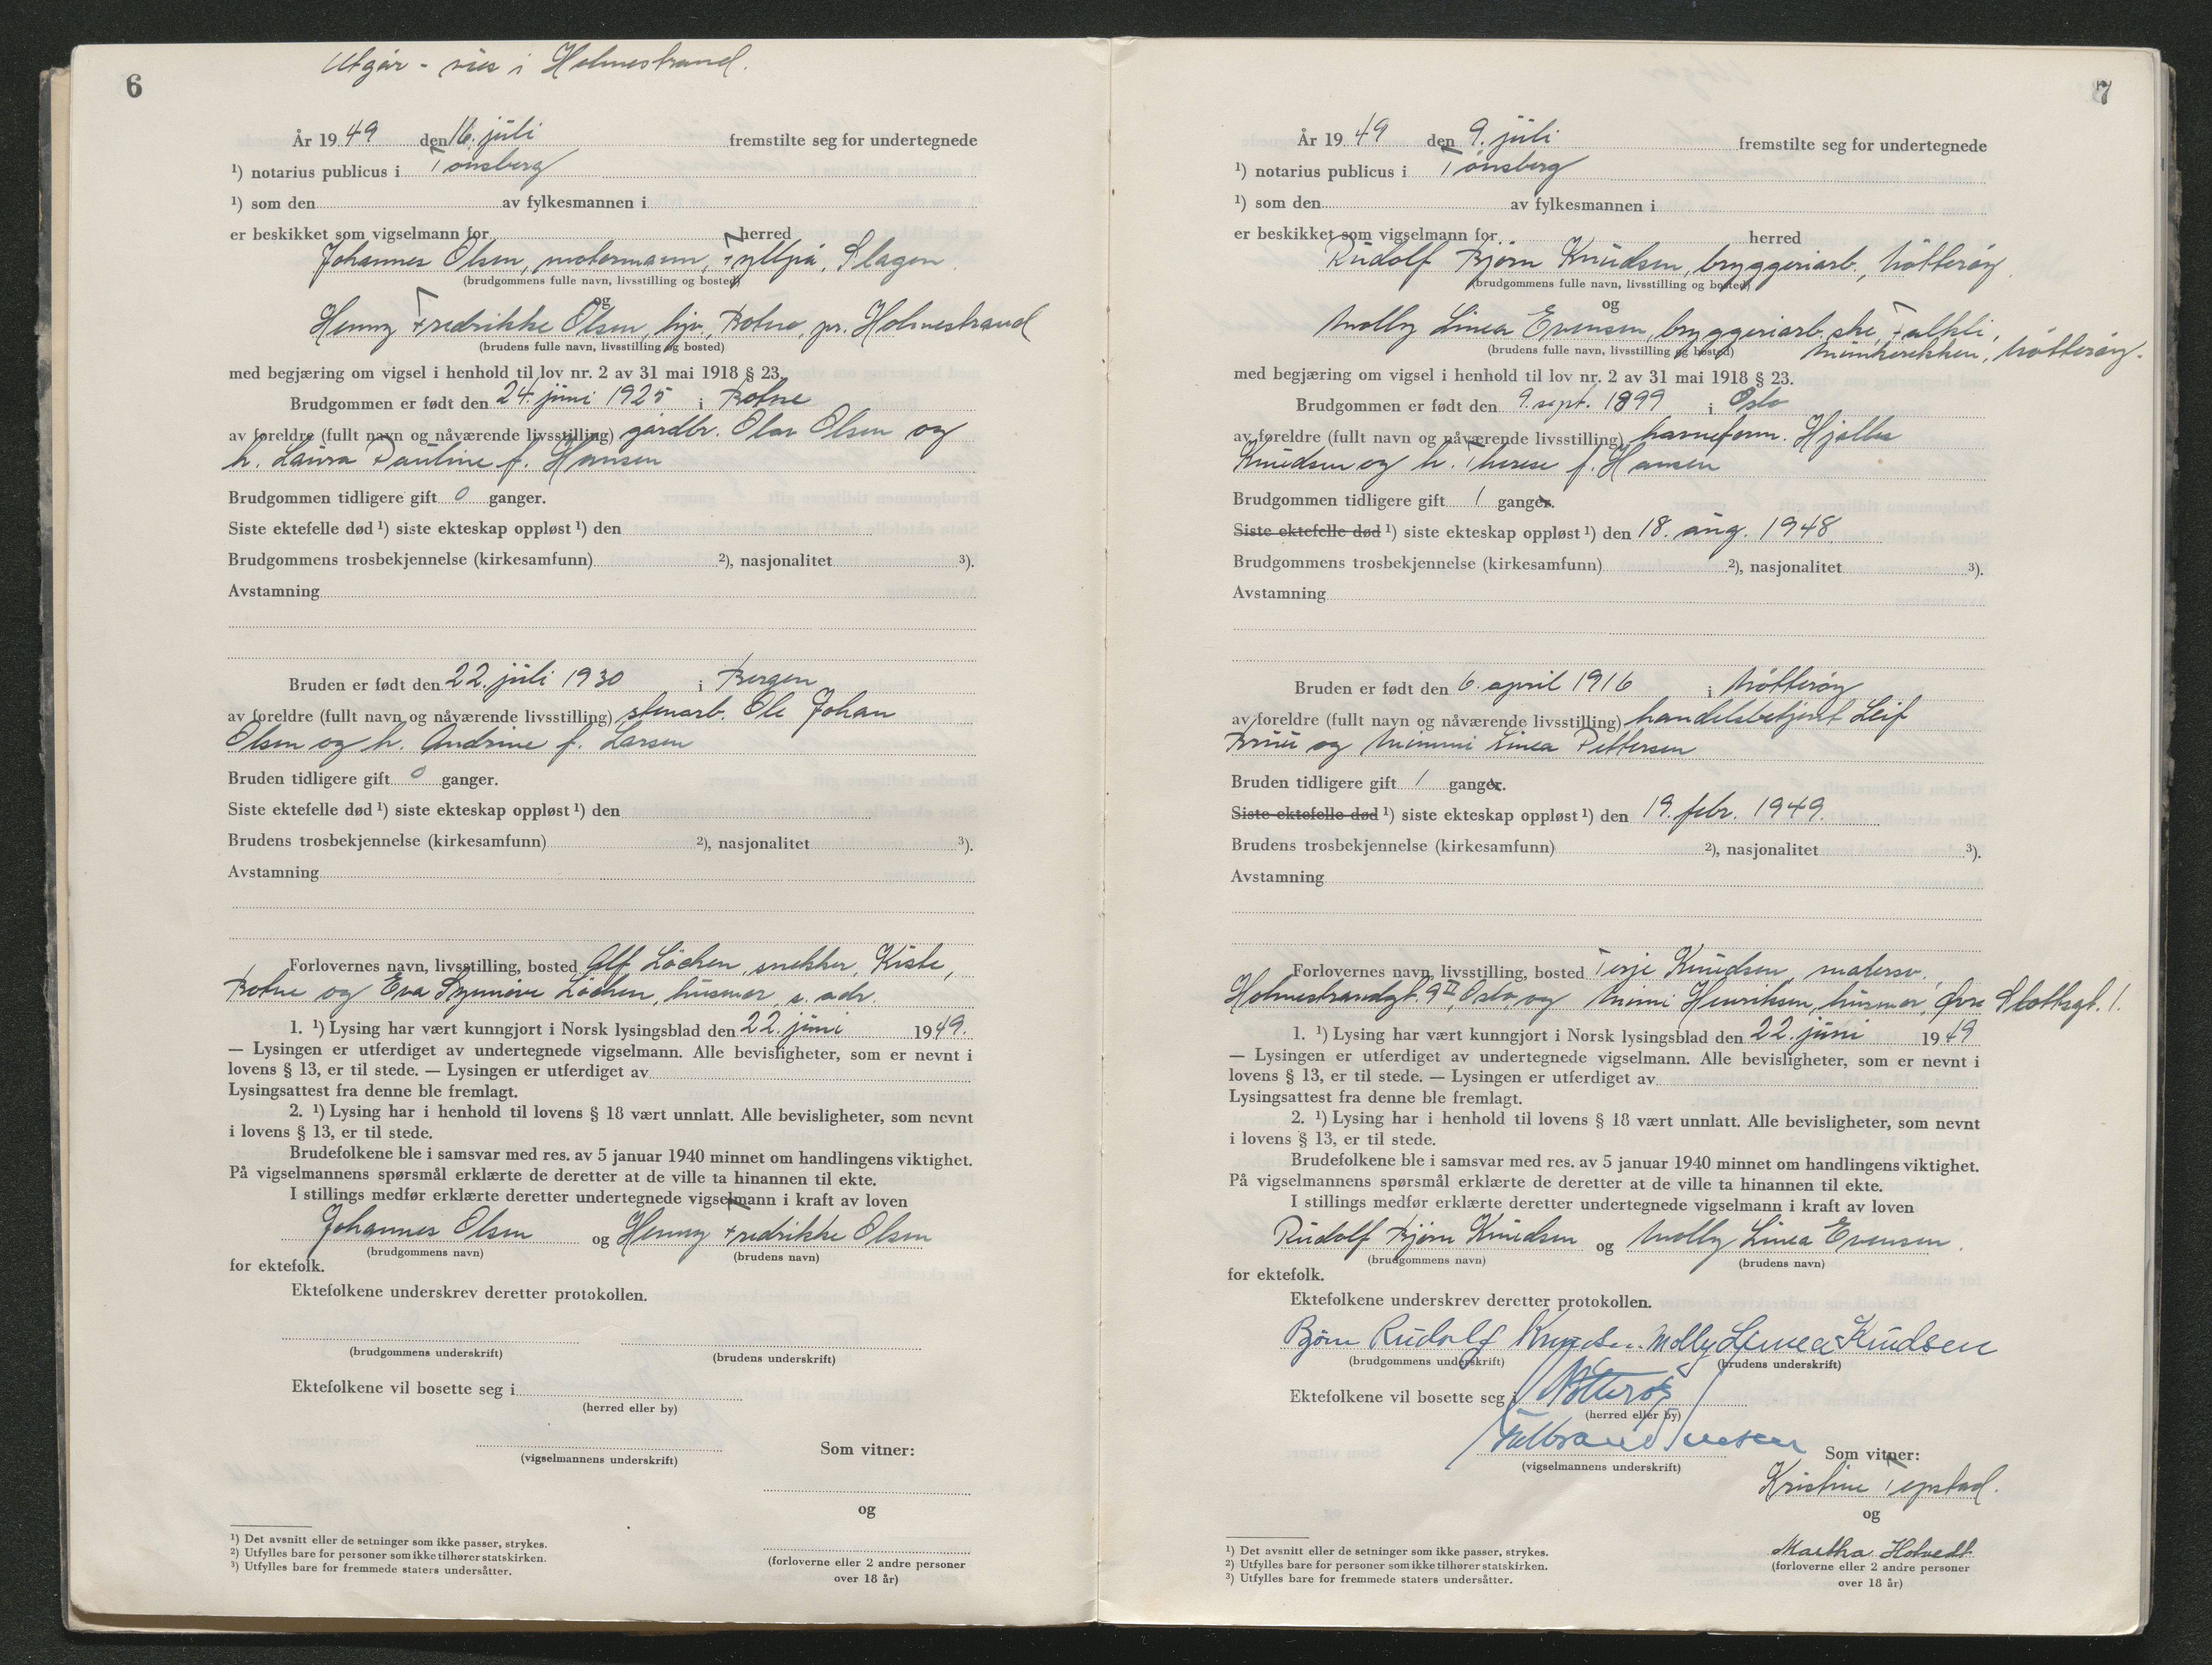 Utgår - vies i Holmestrand.
6
År 1949 den 16. juli fremstilte seg for undertegnede
¹) notarius publicus i Tønsberg
¹) som den av fylkesmannen i
er beskikket som vigselmann for herred
Johannes Olsen, motormann, Fyllpå, Slagen.
(brudgommens fulle navn, livsstilling og bosted)
og
Henny Fredrikke Olsen, hjv., Botne, pr. Holmestrand
(brudens fulle navn, livsstilling og bosted)
med begjæring om vigsel i henhold til lov nr. 2 av 31 mai 1918 § 23.
Brudgommen er født den 24. juni 1925 i Botne
av foreldre (fullt navn og nåværende livsstilling) gårdbr. Olav Olsen og
h. Laura Pauline f. Hansen
Brudgommen tidligere gift 0 ganger.
Siste ektefelle død ¹) siste ekteskap oppløst ¹) den
Brudgommens trosbekjennelse (kirkesamfunn) ²), nasjonalitet ³).
Avstamning
Bruden er født den 22. juli 1930 i Bergen
av foreldre (fullt navn og nåværende livsstilling) stenarb. Ole Johan
Olsen og h. Andrine f. Larsen
Bruden tidligere gift 0 ganger.
Siste ektefelle død ¹) siste ekteskap oppløst ¹) den
Brudens trosbekjennelse (kirkesamfunn) ²), nasjonalitet ³).
Avstamning
Forlovernes navn, livsstilling, bosted Alf Löchen, snekker, Kiste,
Botne og Eva Synnöve Löchen, husmor, s. adr.
1. ¹) Lysing har vært kunngjort i Norsk lysingsblad den 22. juni 1949.
— Lysingen er utferdiget av undertegnede vigselmann. Alle bevisligheter, som er nevnt i
lovens § 13, er til stede. — Lysingen er utferdiget av
Lysingsattest fra denne ble fremlagt.
2. ¹) Lysing har i henhold til lovens § 18 vært unnlatt. Alle bevisligheter, som nevnt
i lovens § 13, er til stede.
Brudefolkene ble i samsvar med res. av 5 januar 1940 minnet om handlingens viktighet.
På vigselmannens spørsmål erklærte de deretter at de ville ta hinannen til ekte.
I stillings medfør erklærte deretter undertegnede vigselmann i kraft av loven
Johannes Olsen og Henny Fredrikke Olsen
(brudgommens navn) (brudens navn)
for ektefolk.
Ektefolkene underskrev deretter protokollen.
(brudgommens underskrift) (brudens underskrift)
Ektefolkene vil bosette seg i
(herred eller by)
Som vitner:
(vigselmannens underskrift)
og
(forloverne eller 2 andre personer
over 18 år)
¹) Det avsnitt eller de setninger som ikke passer, strykes.
²) Utfylles bare for personer som ikke tilhører statskirken.
³) Utfylles bare for fremmede staters undersåtter.
7
År 1949 den 9. juli fremstilte seg for undertegnede
¹) notarius publicus i Tønsberg
¹) som den av fylkesmannen i
er beskikket som vigselmann for herred
Rudolf Bjørn Knudsen, bryggeriarb., Nøtterøy.
(brudgommens fulle navn, livsstilling og bosted)
og
Molly Linea Evensen, bryggeriarb.ske,
(brudens fulle navn, livsstilling og bosted) Munkerekken, Nøtterøy.
med begjæring om vigsel i henhold til lov nr. 2 av 31 mai 1918 § 23.
Brudgommen er født den 9. sept. 1899 i Oslo
av foreldre (fullt navn og nåværende livsstilling) havneform. Hjalmar
Knudsen og h. Therese f. Hansen
Brudgommen tidligere gift 1 ganger.
Siste ektefelle død ¹) siste ekteskap oppløst ¹) den 18. aug. 1948
Brudgommens trosbekjennelse (kirkesamfunn) ²), nasjonalitet ³).
Avstamning
Bruden er født den 6. april 1916 i Nøtterøy
av foreldre (fullt navn og nåværende livsstilling) handelsbetjent Leif
Bruu og Mimmi Linea Pettersen
Bruden tidligere gift 1 ganger.
Siste ektefelle død ¹) siste ekteskap oppløst ¹) den 19. febr. 1949.
Brudens trosbekjennelse (kirkesamfunn) ²), nasjonalitet ³).
Avstamning
Forlovernes navn, livsstilling, bosted Terje Knudsen,
Holmestrandgt. 9 II, Oslo, og Mimi Henriksen, husmor, Øvre Slottsgt. 1.
1. ¹) Lysing har vært kunngjort i Norsk lysingsblad den 22. juni 1949
— Lysingen er utferdiget av undertegnede vigselmann. Alle bevisligheter, som er nevnt i
lovens § 13, er til stede. — Lysingen er utferdiget av
Lysingsattest fra denne ble fremlagt.
2. ¹) Lysing har i henhold til lovens § 18 vært unnlatt. Alle bevisligheter, som nevnt
i lovens § 13, er til stede.
Brudefolkene ble i samsvar med res. av 5 januar 1940 minnet om handlingens viktighet.
På vigselmannens spørsmål erklærte de deretter at de ville ta hinannen til ekte.
I stillings medfør erklærte deretter undertegnede vigselmann i kraft av loven
Rudolf Bjørn Knudsen og Molly Linea Evensen.
(brudgommens navn) (brudens navn)
for ektefolk.
Ektefolkene underskrev deretter protokollen.
Bjørn Rudolf Knudsen. Molly Linea Knudsen
(brudgommens underskrift) (brudens underskrift)
Ektefolkene vil bosette seg i Nøtterøy
(herred eller by)
Som vitner:
(vigselmannens underskrift)
Kristine Tepstad.
og
Martha Hotvedt
(forloverne eller 2 andre personer
over 18 år)
¹) Det avsnitt eller de setninger som ikke passer, strykes.
²) Utfylles bare for personer som ikke tilhører statskirken.
³) Utfylles bare for fremmede staters undersåtter.